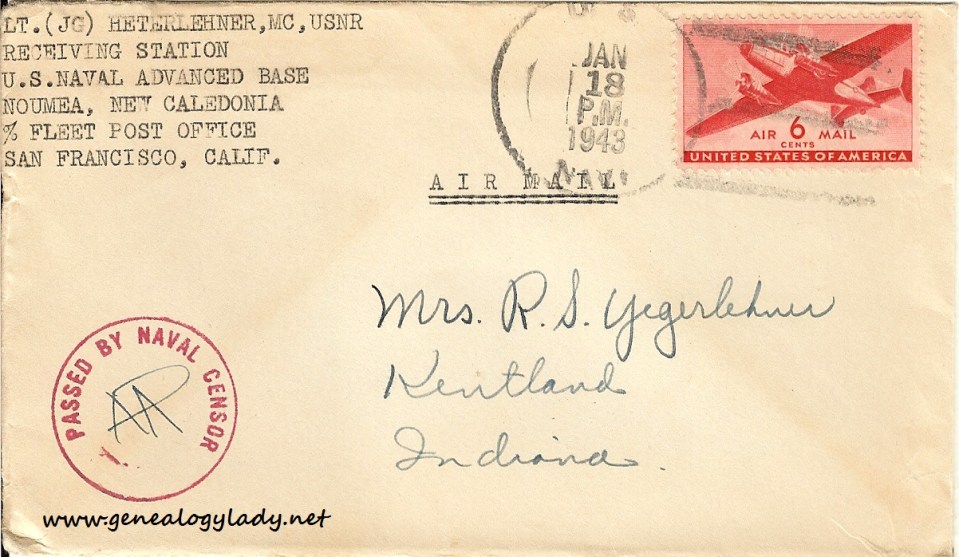 LT.(JG) HETERLEHNER,MC,USNR
RECEIVING STATION
U.S.NAVAL ADVANCED BASE
NOUMEA, NEW CALEDONIA
% FLEET POST OFFICE
SAN FRANCISCO, CALIF.
JAN
18
P.M.
1943
NAVY
AIR 6 MAIL
CENTS
UNITED STATES OF AMERICA
AIR MAIL
Mrs. R. S. Yegerlehner
Kentland
Indiana.
PASSED BY NAVAL CENSOR
www.genealogylady.net